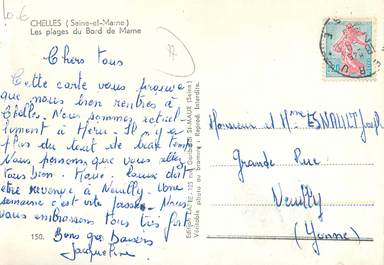 CHELLES (Seine-et-Marne)
Les plages du Bord de Marne
Chers tous
Cette carte vous prouve
que nous bien rentrés à
Chelles. Nous sommes actuel-
lement à Heru. Il y a
plus du tout de beau temps
Nous pensons que vous allez
tous bien.
être revenue à Neuilly. Une
semaine c'est vite passée. Nous
vous embrassons tous très fort
Bons gros Baisers
Jacqueline
150.
Véritable photo au bromure - Reprod. Interdite.
Monsieur et Mme ESNAULT Joseph
Grande Rue
Neuilly
(Yonne)